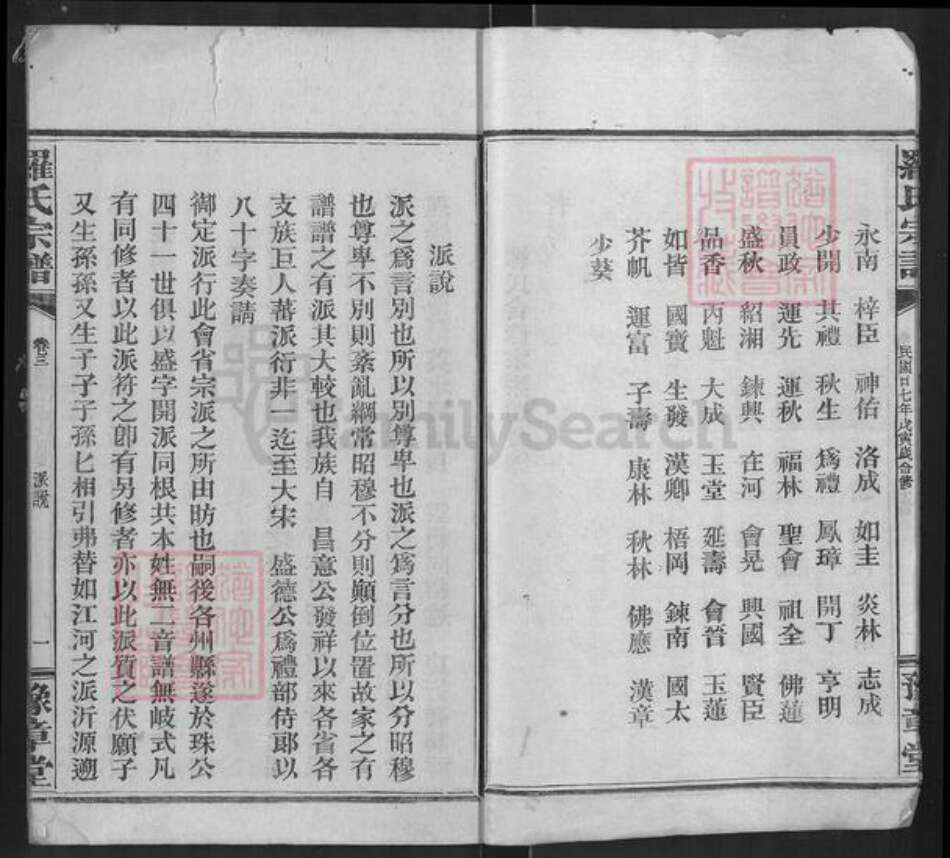 羅氏宗譜
民國廿七年戊寅歲合修
豫章堂
永南 梓臣 神佑 洛成 如圭 炎林 志成
少開 其禮 秋生 爲禮 鳳璋 開丁 亨明
員政 運先 運秋 福林 聖會 祖全 佛蓮
盛秋 紹湘 鍊興 在河 會晃 興國 賢臣
品香 丙魁 大成 玉堂 延壽 會晉 玉蓮
如皆 國寶 生發 漢卿 梧岡 鍊南 國太
芥帆 運富 子壽 康林 秋林 佛應 漢章
少葵
派說
派之爲言別也所以別尊卑也派之爲言分也所以分昭穆
也尊卑不別則紊亂綱常昭穆不分則顚倒位置故家之有
譜譜之有派其大較也我族自 昌意公發祥以來各省各
支族巨人蕃派衍非一迄至大宋 盛德公爲禮部侍郞以
八十字奏請
御定派行此會省宗派之所由昉也嗣後各州縣遂於珠公
四十一世俱以盛字開派同根共本姓無二音譜無岐式凡
有同修者以此派符之卽有另修者亦以此派質之伏願子
又生孫孫又生子子子孫匕相引弗替如江河之派沂源遡
羅氏宗譜
卷三
派說
一
豫章堂
FamilySearch